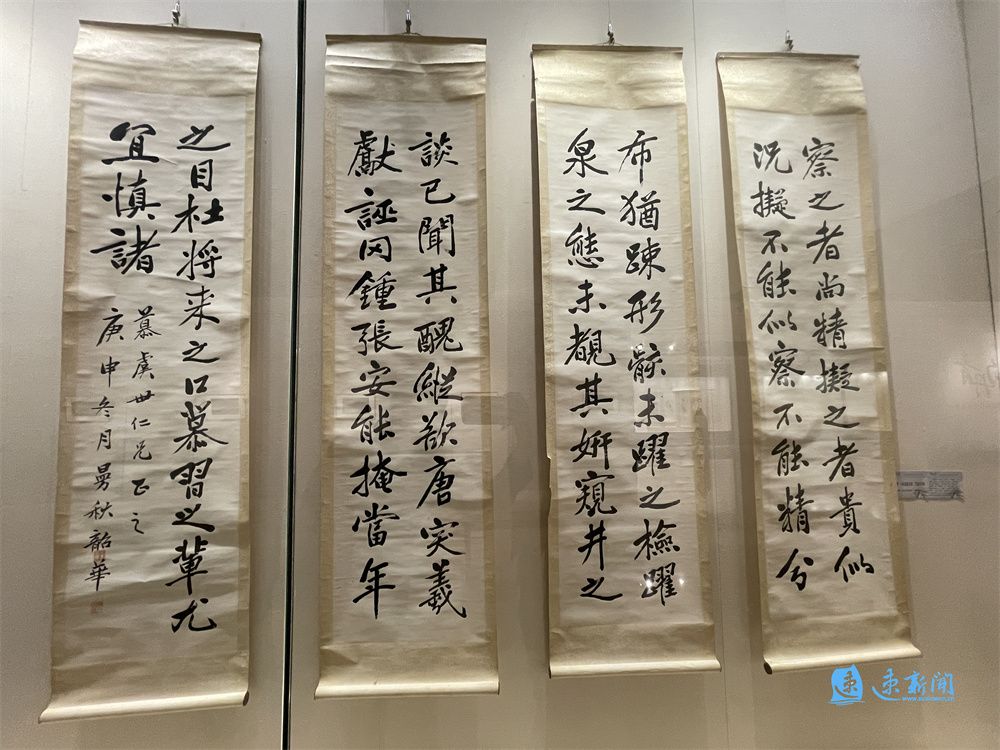 察之者尚精擬之者貴似
況擬不能似察不能精分
布猶踈形骸未躍之檢躍
泉之態未覩其妍窺井之
談已聞其醜縱欲唐突羲
獻誣罔鍾張安能掩當年
之目杜將来之口慕習之輩尤
宜慎諸
慕虞世仁兄正之
庚申冬月曼秋韶華
速新聞